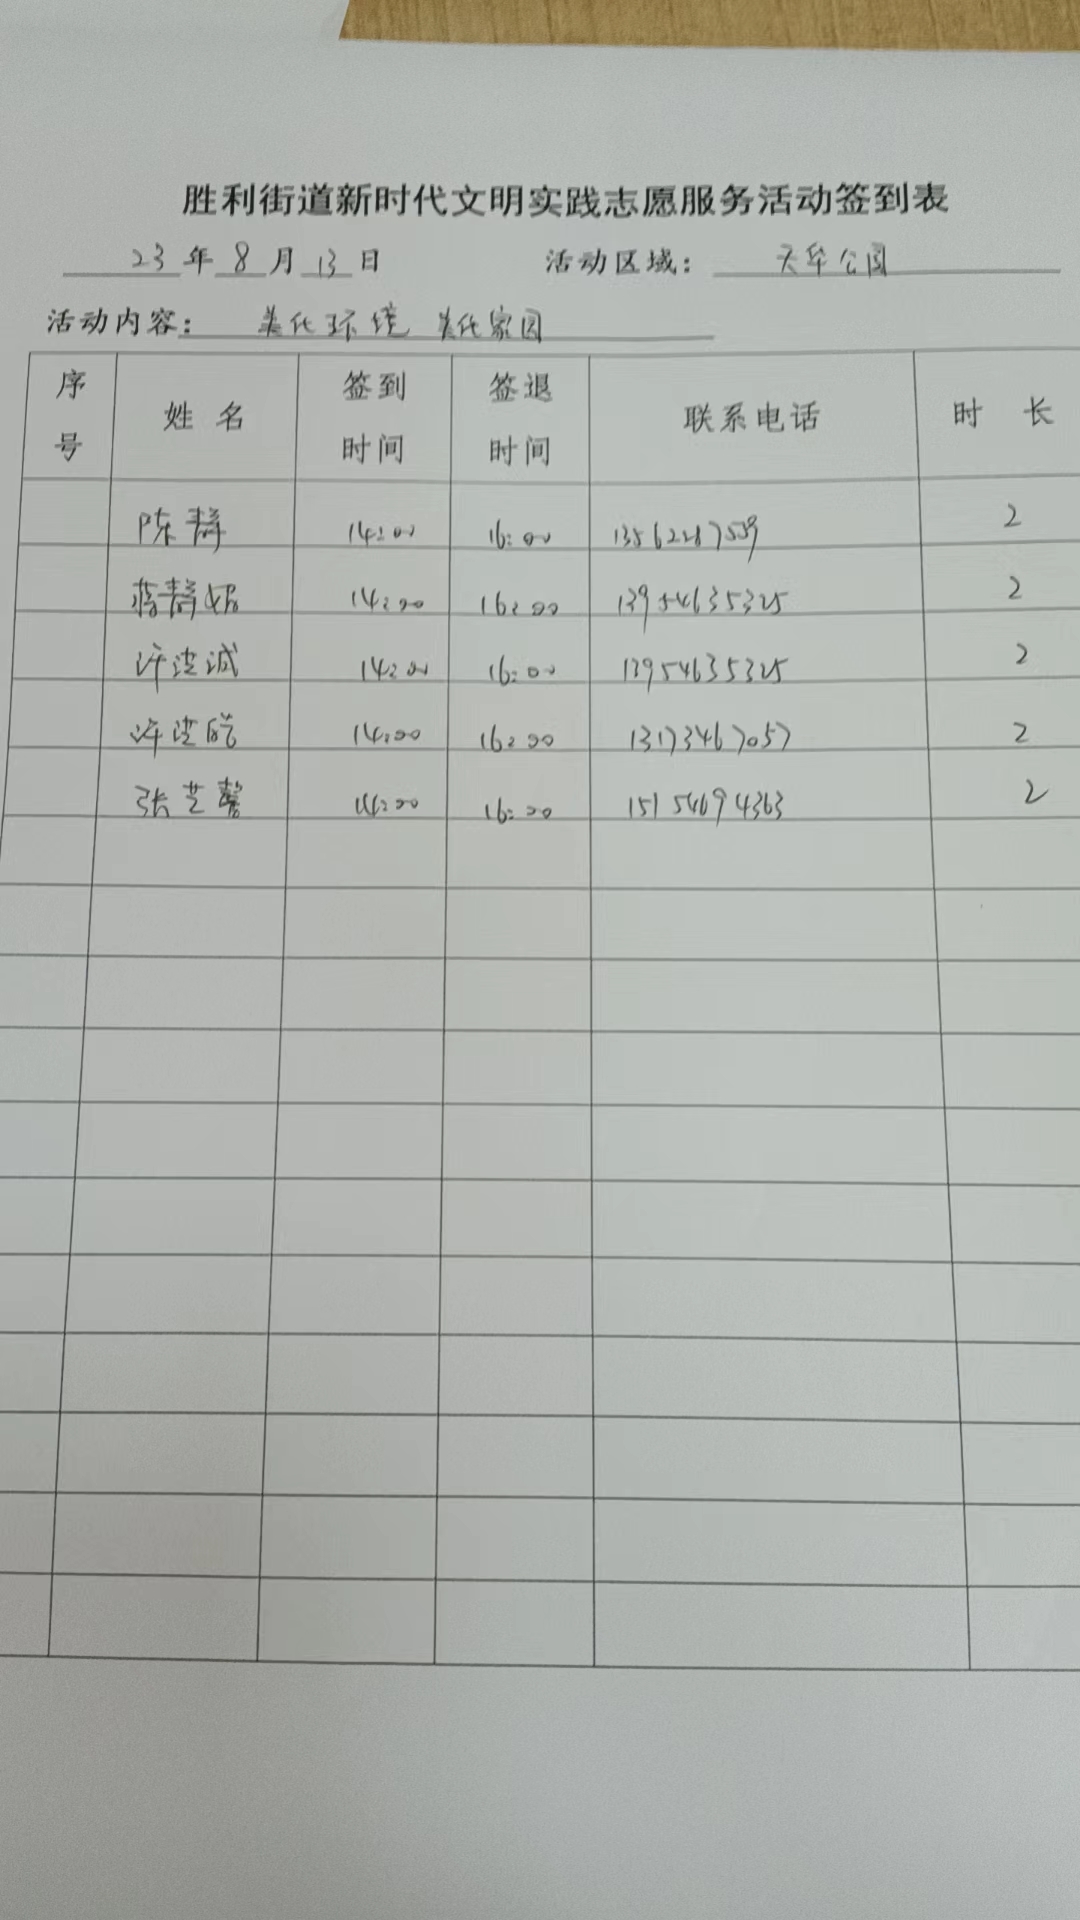 胜利街道新时代文明实践志愿服务活动签到表
23年8月13日 活动区域：天华公园
活动内容：美化环境 美化家园
序号 姓名 签到时间 签退时间 联系电话 时长
陈静 14:00 16:00 13562287559 2
蒋静娴 14:00 16:00 13954635325 2
许浩诚 14:00 16:00 13954635325 2
许浩皓 14:00 16:00 13173467057 2
张艺馨 14:00 16:00 15154694363 2